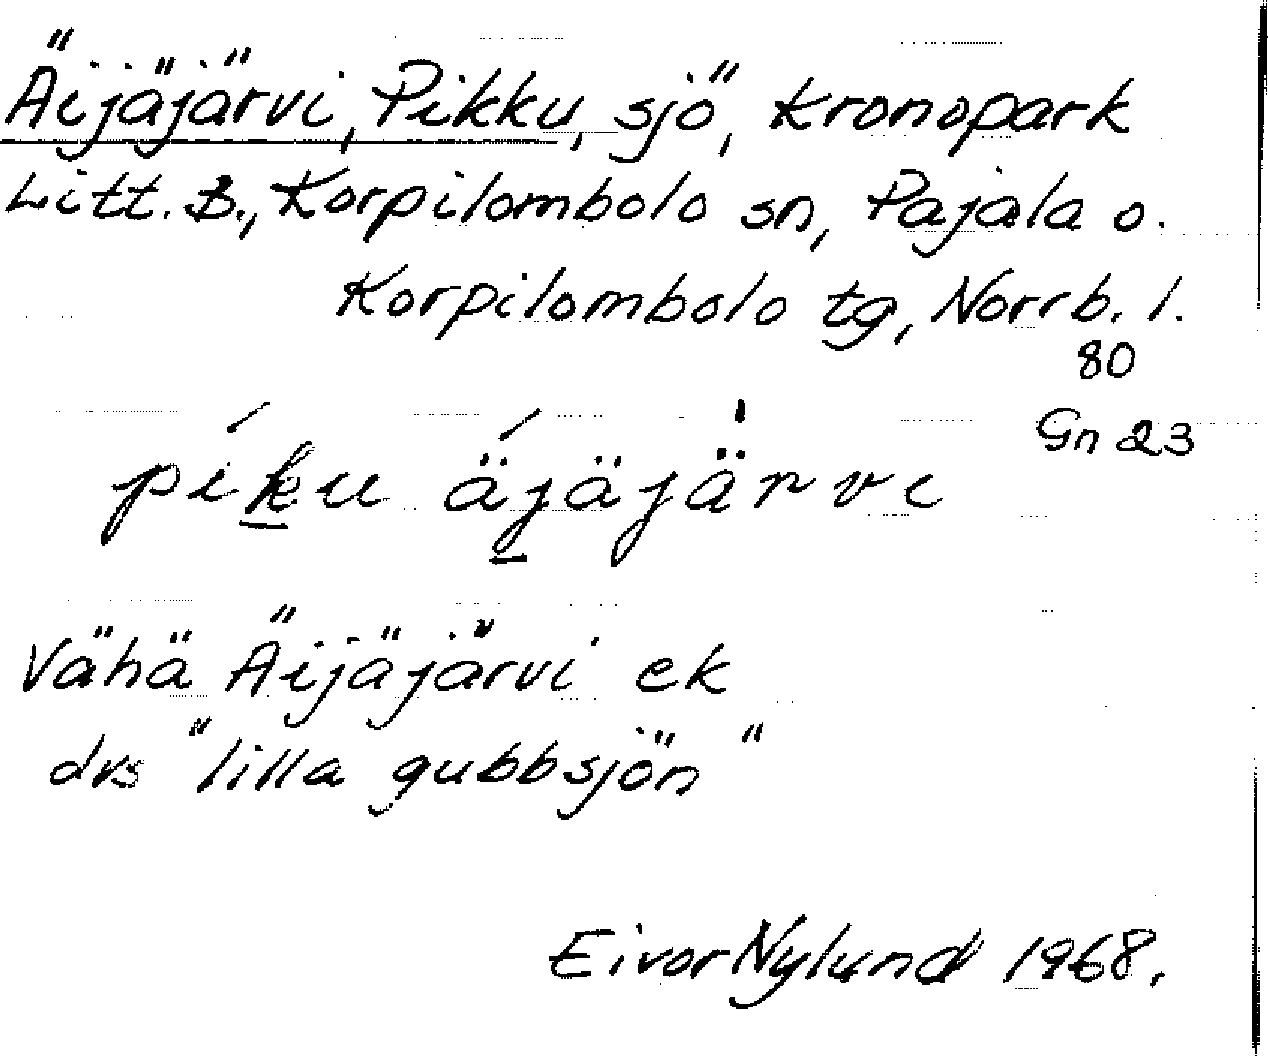 Äijäjärvi, Pikku, sjö, kronopark
Litt. B., Korpilombolo sn, Pajala o.
Korpilombolo tg, Norrb. l.
80
Gn 23
píku ä́jäjärvi
Vähä Äijäjärvi ek
dvs "lilla gubbsjön"
Eivor Nylund 1968.